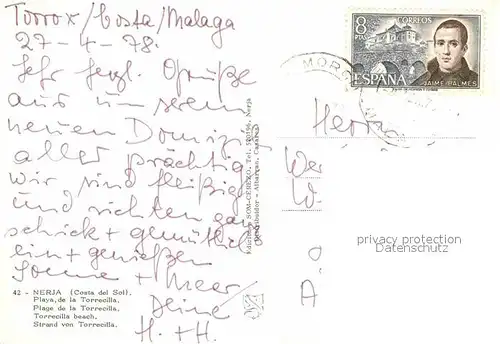 Torrox/Costa/Malaga
27-4-78.
Sehr herzl. Grüße
aus unserem
neuen Domizil
alles prächtig
Wir sind fleißig
und richten ganz
schick + gemütlich
ein + genießen
Sonne + Meer
Deine
H. + H.
42 - NERJA (Costa del Sol).
Playa de la Torrecilla.
Plage de la Torrecilla.
Torrecilla beach.
Strand von Torrecilla.
Ediciones SOM-CEREZO. Tel. Nerja
Distribuidor - Albarran,
8
PTAS
CORREOS
ESPAÑA
JAIME BALMES
Herrn
Wer
W-
A
privacy protection
watermarks